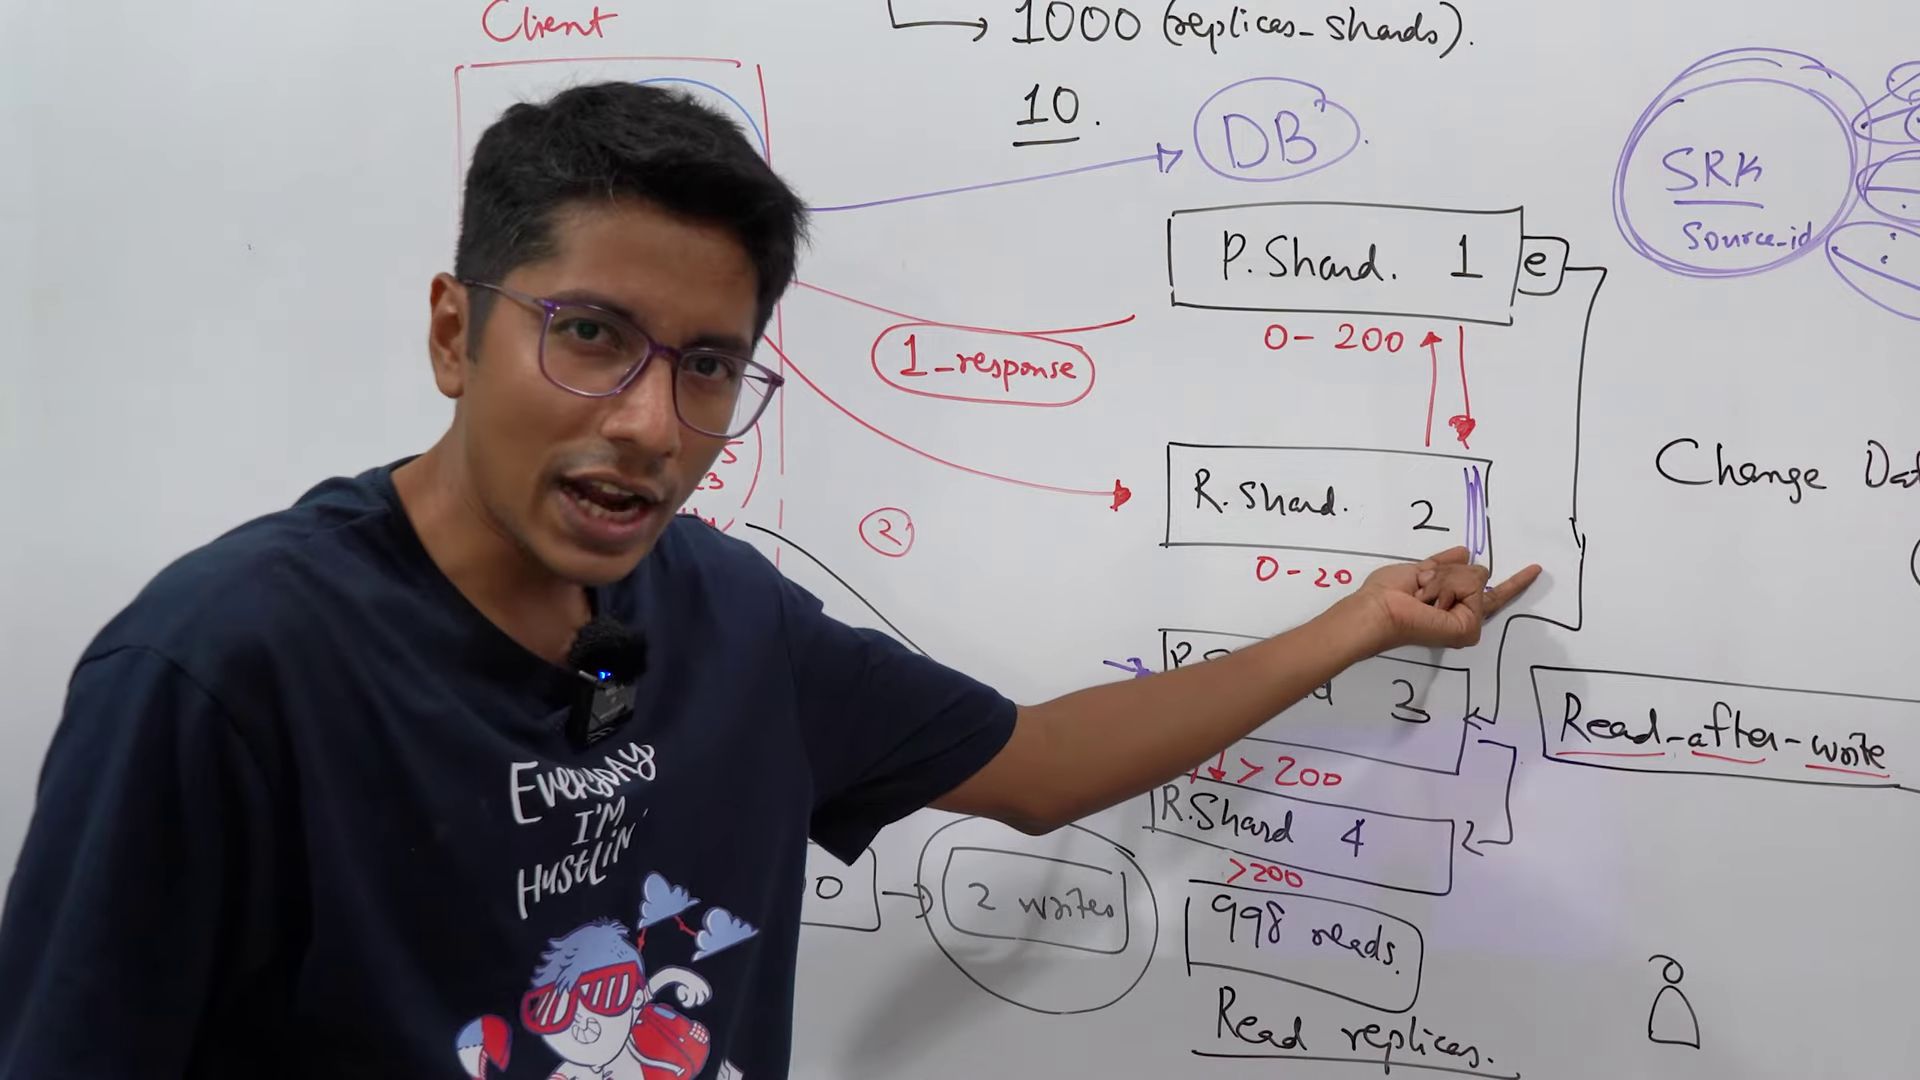 Client
1000 (replicas_shards).
10.
DB
SRK
Source_id
P. Shard. 1
e
0 - 200
1_response
R. Shard. 2
2
0 - 20
Change
3
> 200
Read-after-write
R.Shard 4
>200
0
2 writes
998 reads.
Read replicas.
EVERYDAY
I'M
HUSTLIN'